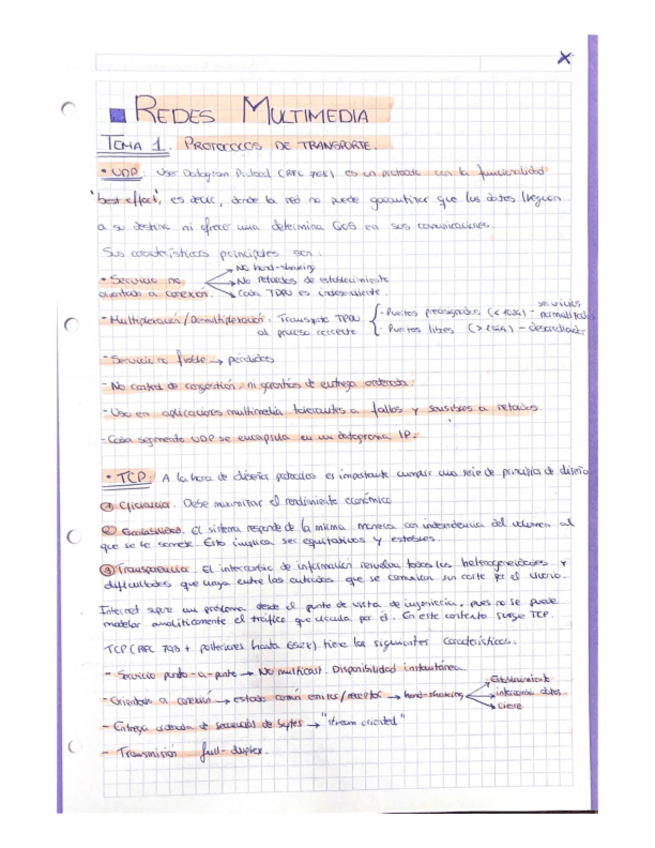 REDES MULTIMEDIA
TEMA 1. PROTOCOLOS DE TRANSPORTE.
• UDP: User Datagram Protocol (RFC 768) es un protocolo con la funcionalidad
"best effort", es decir, donde la red no puede garantizar que los datos lleguen
a su destino ni ofrece una determina QoS en sus comunicaciones.
Sus características principales son:
• Servicio no orientado a conexión. → No hand-shaking
→ No retardos de establecimiento
→ Cada TPDU es independiente
- Multiplexación / Demultiplexación. Transporte TPDU al proceso correcto
- Puertos preasignados (< 1024) - servicios normalizados
- Puertos libres (> 1024) - desarrollador
- Servicio no fiable → pérdidas
- No control de congestión, ni garantías de entrega ordenada.
- Uso en aplicaciones multimedia tolerantes a fallos y sensibles a retardos.
- Cada segmento UDP se encapsula en un datagrama IP.
• TCP: A la hora de diseñar protocolos es importante cumplir una serie de principios de diseño
① Eficiencia. Debe maximizar el rendimiento económico
② Escalabilidad. El sistema responde de la misma manera con independencia del volumen al
que se le somete. Esto implica ser equitativos y estables.
③ Transparencia. El intercambio de información resuelva todas las heterogeneidades y
dificultades que haya entre las entidades que se comunican sin coste por el usuario.
Internet supone un problema desde el punto de vista de ingeniería, pues no se puede
modelar analíticamente el tráfico que circula por él. En este contexto surge TCP.
TCP (RFC 793 + posteriores hasta ) tiene las siguientes características:
- Servicio punto-a-punto → No multicast. Disponibilidad instantánea.
- Orientado a conexión → estado común emisor/receptor → hand-shaking → Establecimiento
→ intercambio datos
→ cierre
- Entrega ordenada de secuencias de bytes → "stream oriented"
- Transmisión full-duplex.